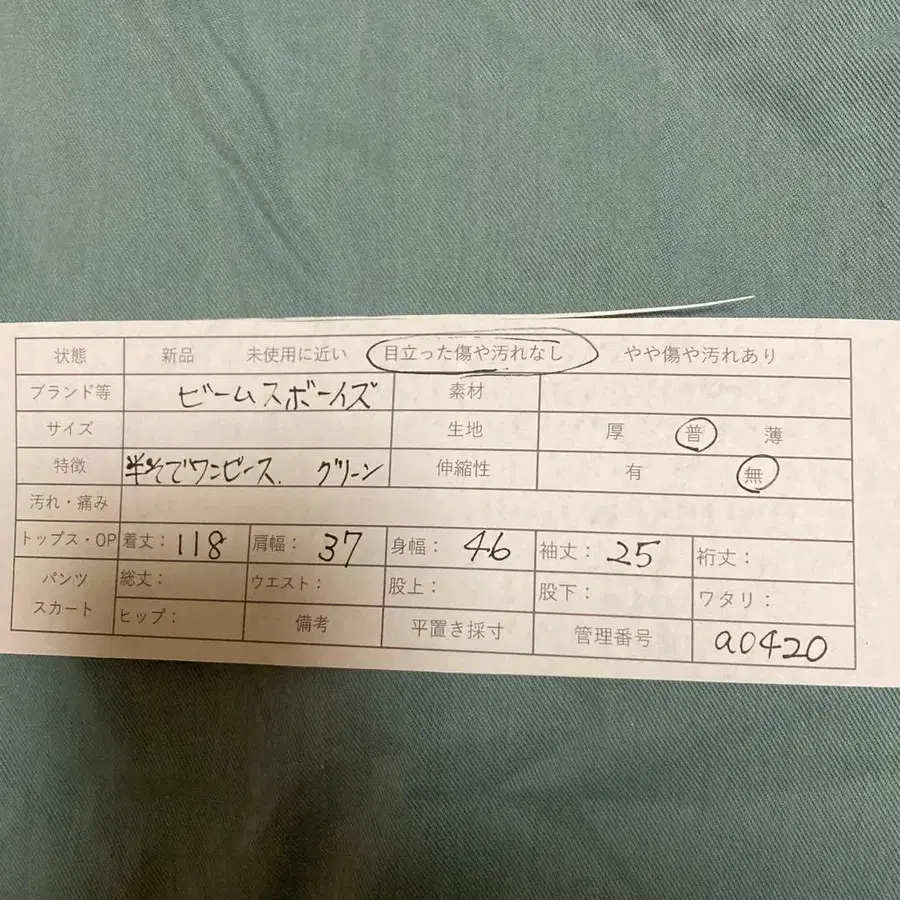 状態 新品 未使用に近い 目立った傷や汚れなし やや傷や汚れあり
ブランド等 ビームスボーイズ 素材
サイズ 生地 厚 普 薄
特徴 半そでワンピース. グリーン 伸縮性 有 無
汚れ・痛み
トップス・OP 着丈：118 肩幅：37 身幅：46 袖丈：25 裄丈：
パンツ スカート 総丈： ウエスト： 股上： 股下： ワタリ：
ヒップ： 備考 平置き採寸 管理番号 a0420